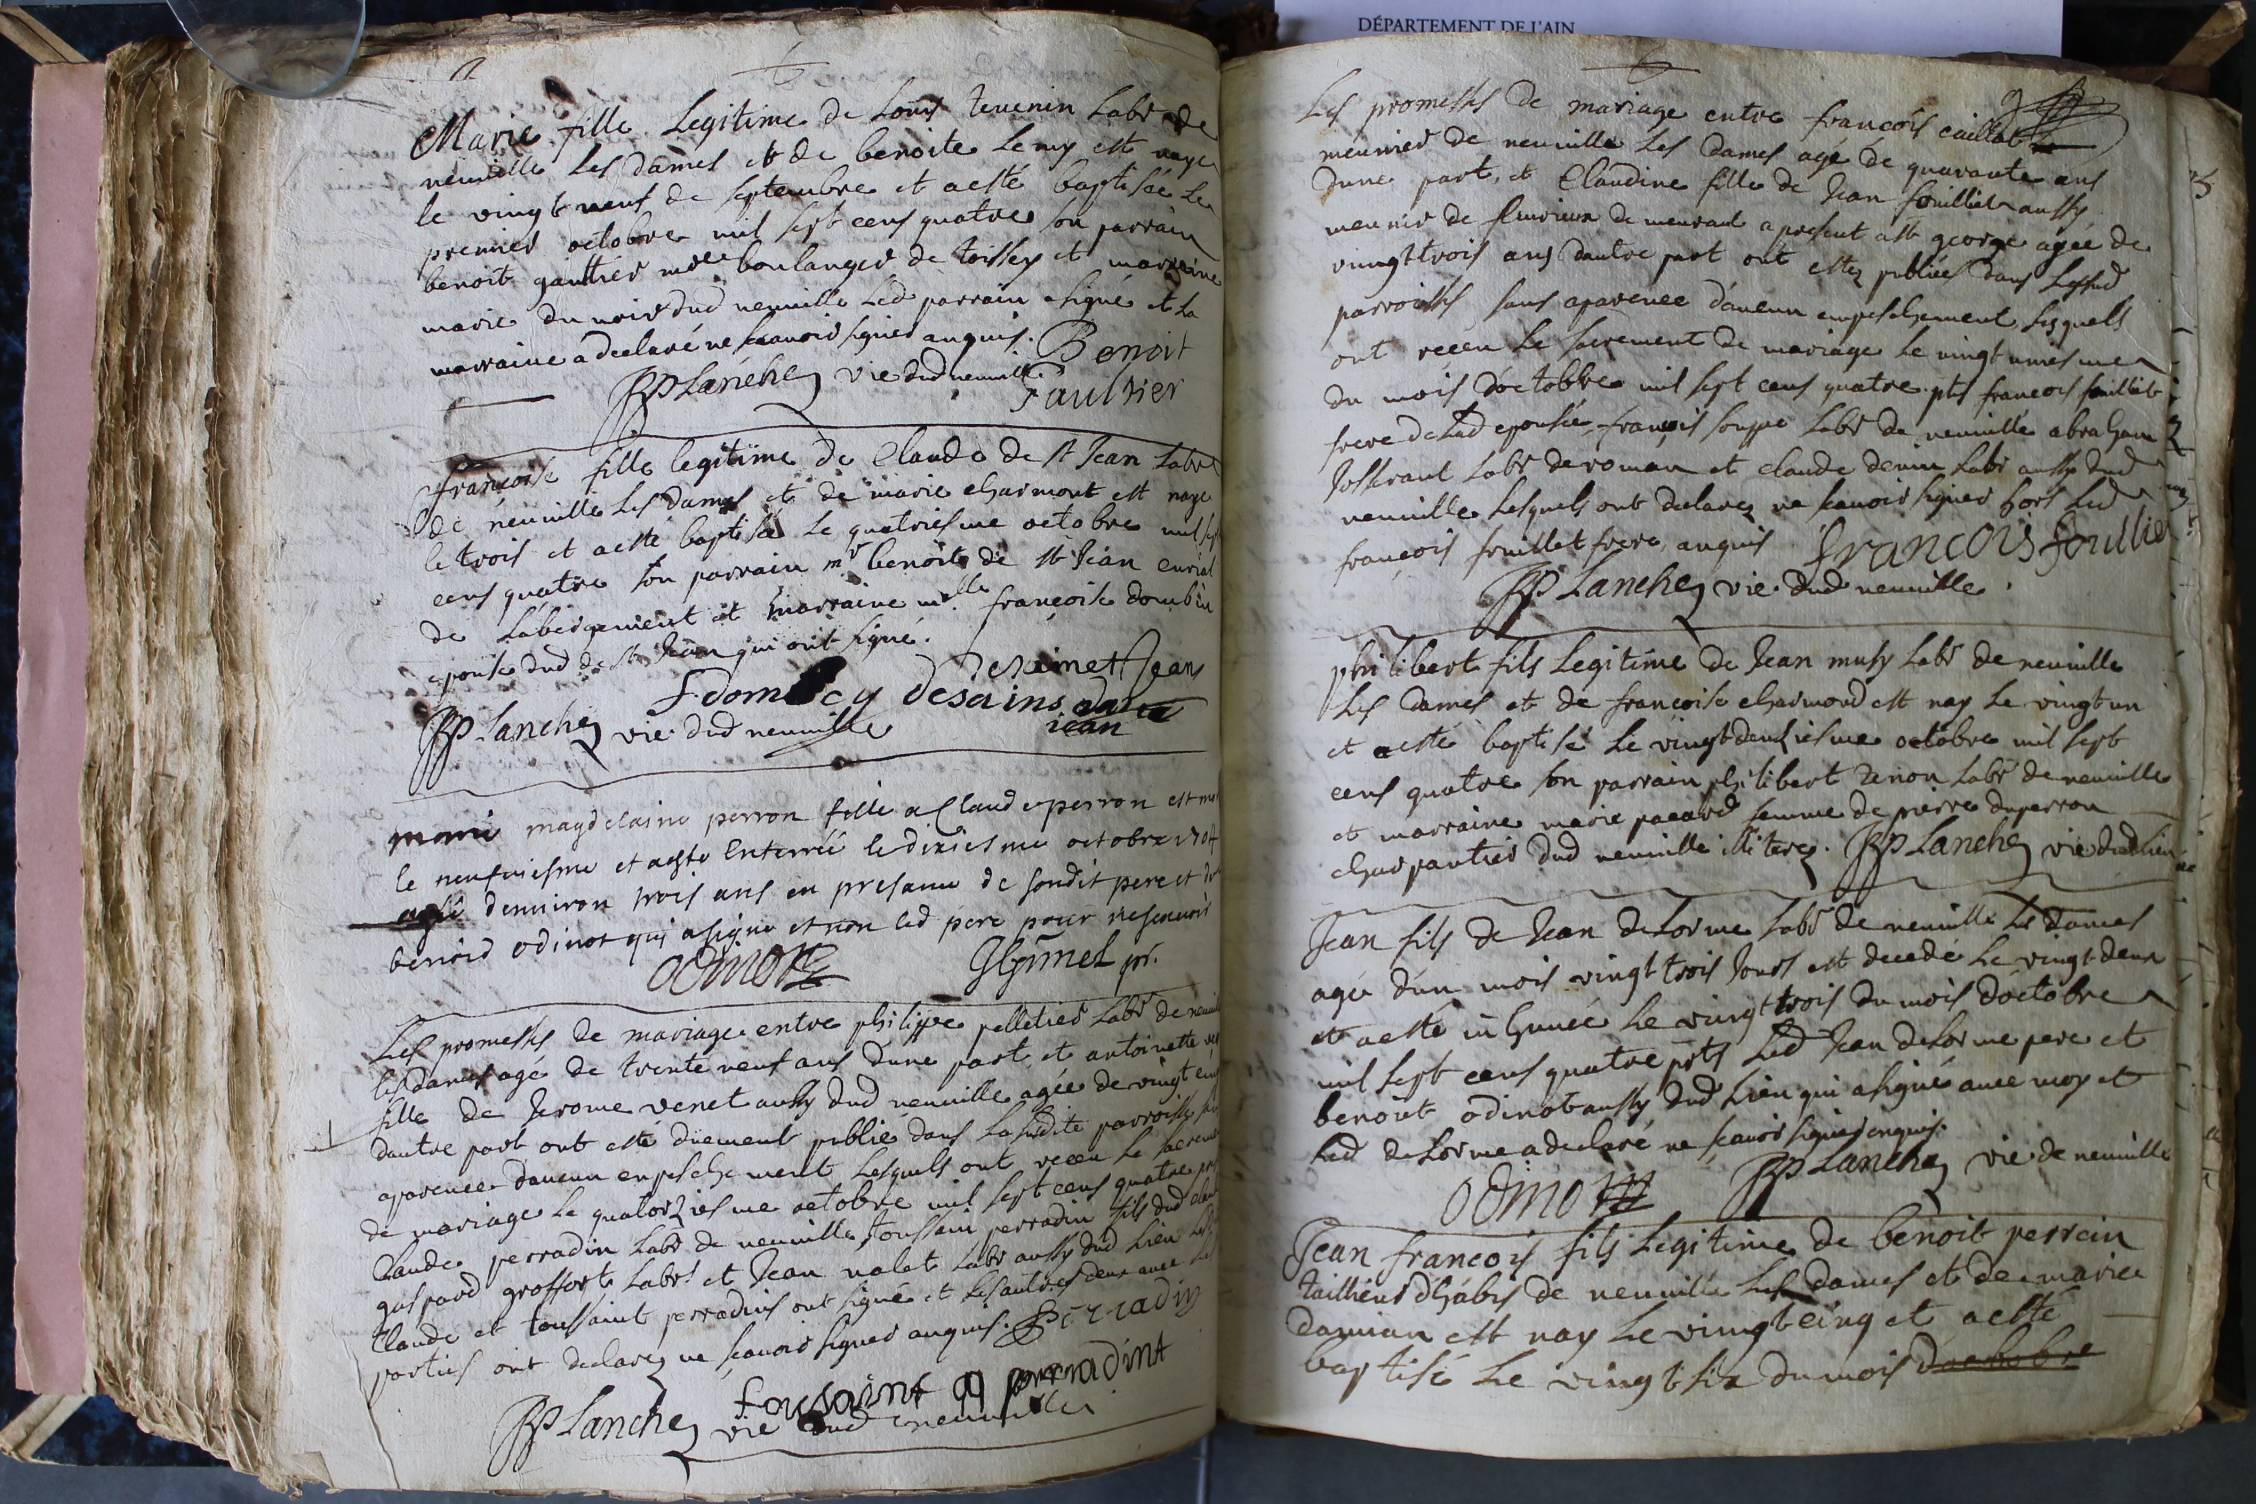 DÉPARTEMENT DE L'AIN
Marie fille Legitime de Louis tevenin Labr de
neuville Les dames et de benoite Lemy est naye
le vingt neuf de septembre et a esté baptisée Le
premier octobre mil sept cens quatre son parrain
benoit gaultier mre boulanger de toissey et marraine
marie du noir dud neuville Led parrain a signé et La
marraine a declaré ne scavoir signer enquis. Benoit
JP Lanchey vic dud neuville. Gaultier
francoise fille legitime de Claude de st Jean Labr
de neuville Les dames et de marie charmont est naye
le trois et a esté baptisée Le quatriesme octobre mil sept
cens quatre son parrain mr benoit de st Jean curial
de Labergement et marraine mlle francoise
epouse dud de st Jean qui ont signé.
desaims
jean
JP Lanchey vic dud neuville
magdelaine perron fille a Claude perron est
le neufviesme et a esté enterréé le dixiesme octobre 1704
agéé denviron trois ans en presance de sondit pere et de
benoid odinot qui a signe et non led pere pour ne scavoir
odinot
Les promesses de mariage entre philippe pelletier Labr de
les dames agé de trente neuf ans d'une part, et antoinette
fille de Jerome venet aussy dud neuville agée de vingt
dautre part ont esté düement publié dans La susdite parroisse
aparence daucun empeschement Lesquels ont receu Le
de mariage Le quatorziesme octobre mil sept cens quatre
Claude perradin Labr de neuville, toussain perradin fils dud
gaspard groffort Labr et Jean nalet Labr aussy dud Lieu
Claude et toussaint perradins ont signé et Les autres deux avec Les
parties ont declarez ne scavoir signer enquis. Perradin
tousaint perradint
JP Lanchey vic dud neuville
Les promesses de mariage entre francois caillat
meunier de neuville Les dames agé de quarante ans
dune part, et Claudine fille de Jean fouillet aussy
meunier de fleurieux de meuraut a present a st george agée de
vingt trois ans dautre part ont estez publiés dans Lesd
parroisses sans aparence d'aucun empeschement, Lesquels
ont receu Le sacrement de mariage Le vingt uniesme
du mois d'octobre mil sept cens quatre pts francois fouillet
frere de Lad epousée, francois souppe Labr de neuville abraham
Josserant Labr de roman et claude denin Labr aussy dud
neuville Lesquels ont declarez ne scavoir signer hors Led
francois fouillet frere, enquis. francois foullie
JP Lanchey vic. dud neuville.
philibert fils Legitime de Jean musy Labr de neuville
Les dames et de francoise charmond est nay Le vingt un
et a esté baptisé Le vingt deuxiesme octobre mil sept
cens quatre son parrain philibert renon Labr de neuville
et marraine marie pacard femme de pierre duperron
charpantier dud neuville illiterez. JP Lanchey vic dud Lieu
Jean fils de Jean deLorme Labr de neuville Les dames
agé d'un mois vingt trois Jours est decedé Le vingt deux
et a esté inhumé Le vingt trois du mois d'octobre
mil sept cens quatre pnts Led Jean deLorme pere et
benoit odinot aussy dud Lieu qui a signé avec moy et
Led deLorme a declaré ne scavoir signer enquis.
odinot JP Lanchey vic. de neuville
Jean francois fils Legitime de benoit perrein
taillieur d'habis de neuville Les dames et de marie
damian est nay Le vingt cinq et a esté
baptisé Le vingt six du mois d'octobre